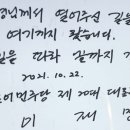 께서 열어주신 길을
여기까지 왔습니다.
길을 따라 끝까지
2021. 10. 22.
민주당 제20대 대
이 재